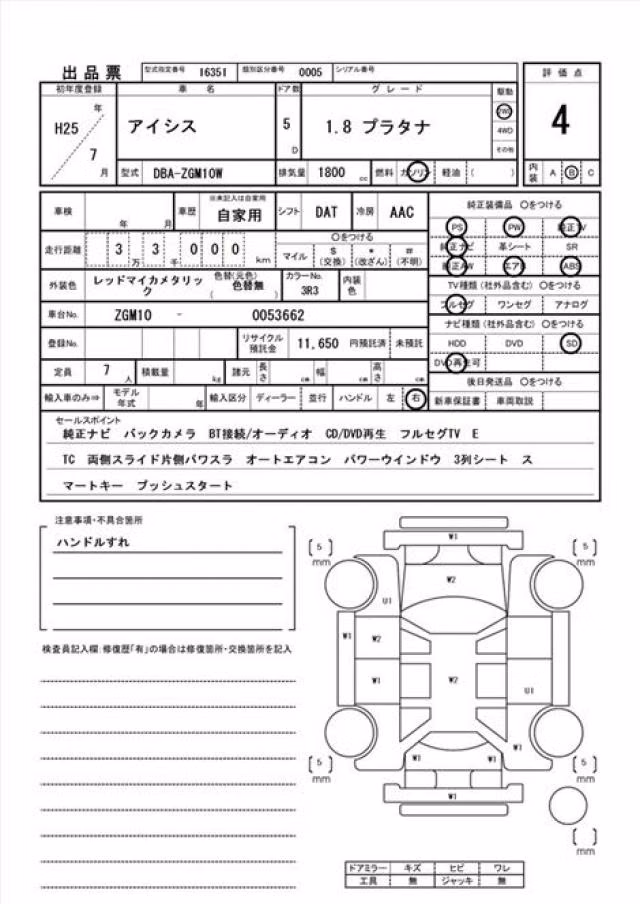 出品票 型式指定番号 16351 類別区分番号 0005 シリアル番号
初年度登録 車 名 ドア数 グ レ ー ド 駆動 評 価 点
H25 年 7 月 アイシス 5 D 1.8 プラタナ 2WD 4WD その他 4
型式 DBA-ZGM10W 排気量 1800 cc 燃料 ガソリン 軽油 ( ) 内装 A B C
車検 年 月 車歴 ※未記入は自家用 自家用 シフト DAT 冷房 AAC 純正装備品 〇をつける
PS PW 純正TV
走行距離 3 3 万 千 0 0 0 km 〇をつける マイル $ (交換) * (改ざん) # (不明) 純正ナビ 革シート SR
純正AW エアB ABS
外装色 レッドマイカメタリック 色替(元色) ( 色替無 ) カラーNo. 3R3 内装色 TV種類(社外品含む) 〇をつける
フルセグ ワンセグ アナログ
車台No. ZGM10 - 0053662 ナビ種類(社外品含む) 〇をつける
登録No. リサイクル預託金 11,650 円預託済 未預託 HDD DVD SD
DVD再生可
定員 7 人 積載量 kg 諸元 長さ cm 幅 cm 高さ cm 後日発送品 〇をつける
輸入車のみ⇒ モデル年式 年 輸入区分 ディーラー 並行 ハンドル 左 右 新車保証書 車両取説
セールスポイント
純正ナビ バックカメラ BT接続/オーディオ CD/DVD再生 フルセグTV E
TC 両側スライド片側パワスラ オートエアコン パワーウインドウ 3列シート ス
マートキー プッシュスタート
注意事項・不具合箇所
ハンドルすれ
検査員記入欄:修復歴「有」の場合は修復箇所・交換箇所を記入
W1
[ 5 ] mm [ 5 ] mm
W2
U1
W1 W2
W1 W2 U1
W1
W1 W1
[ 5 ] mm [ 5 ] mm
W1
[ ] mm
ドアミラー キズ ヒビ ワレ
工具 無 ジャッキ 無